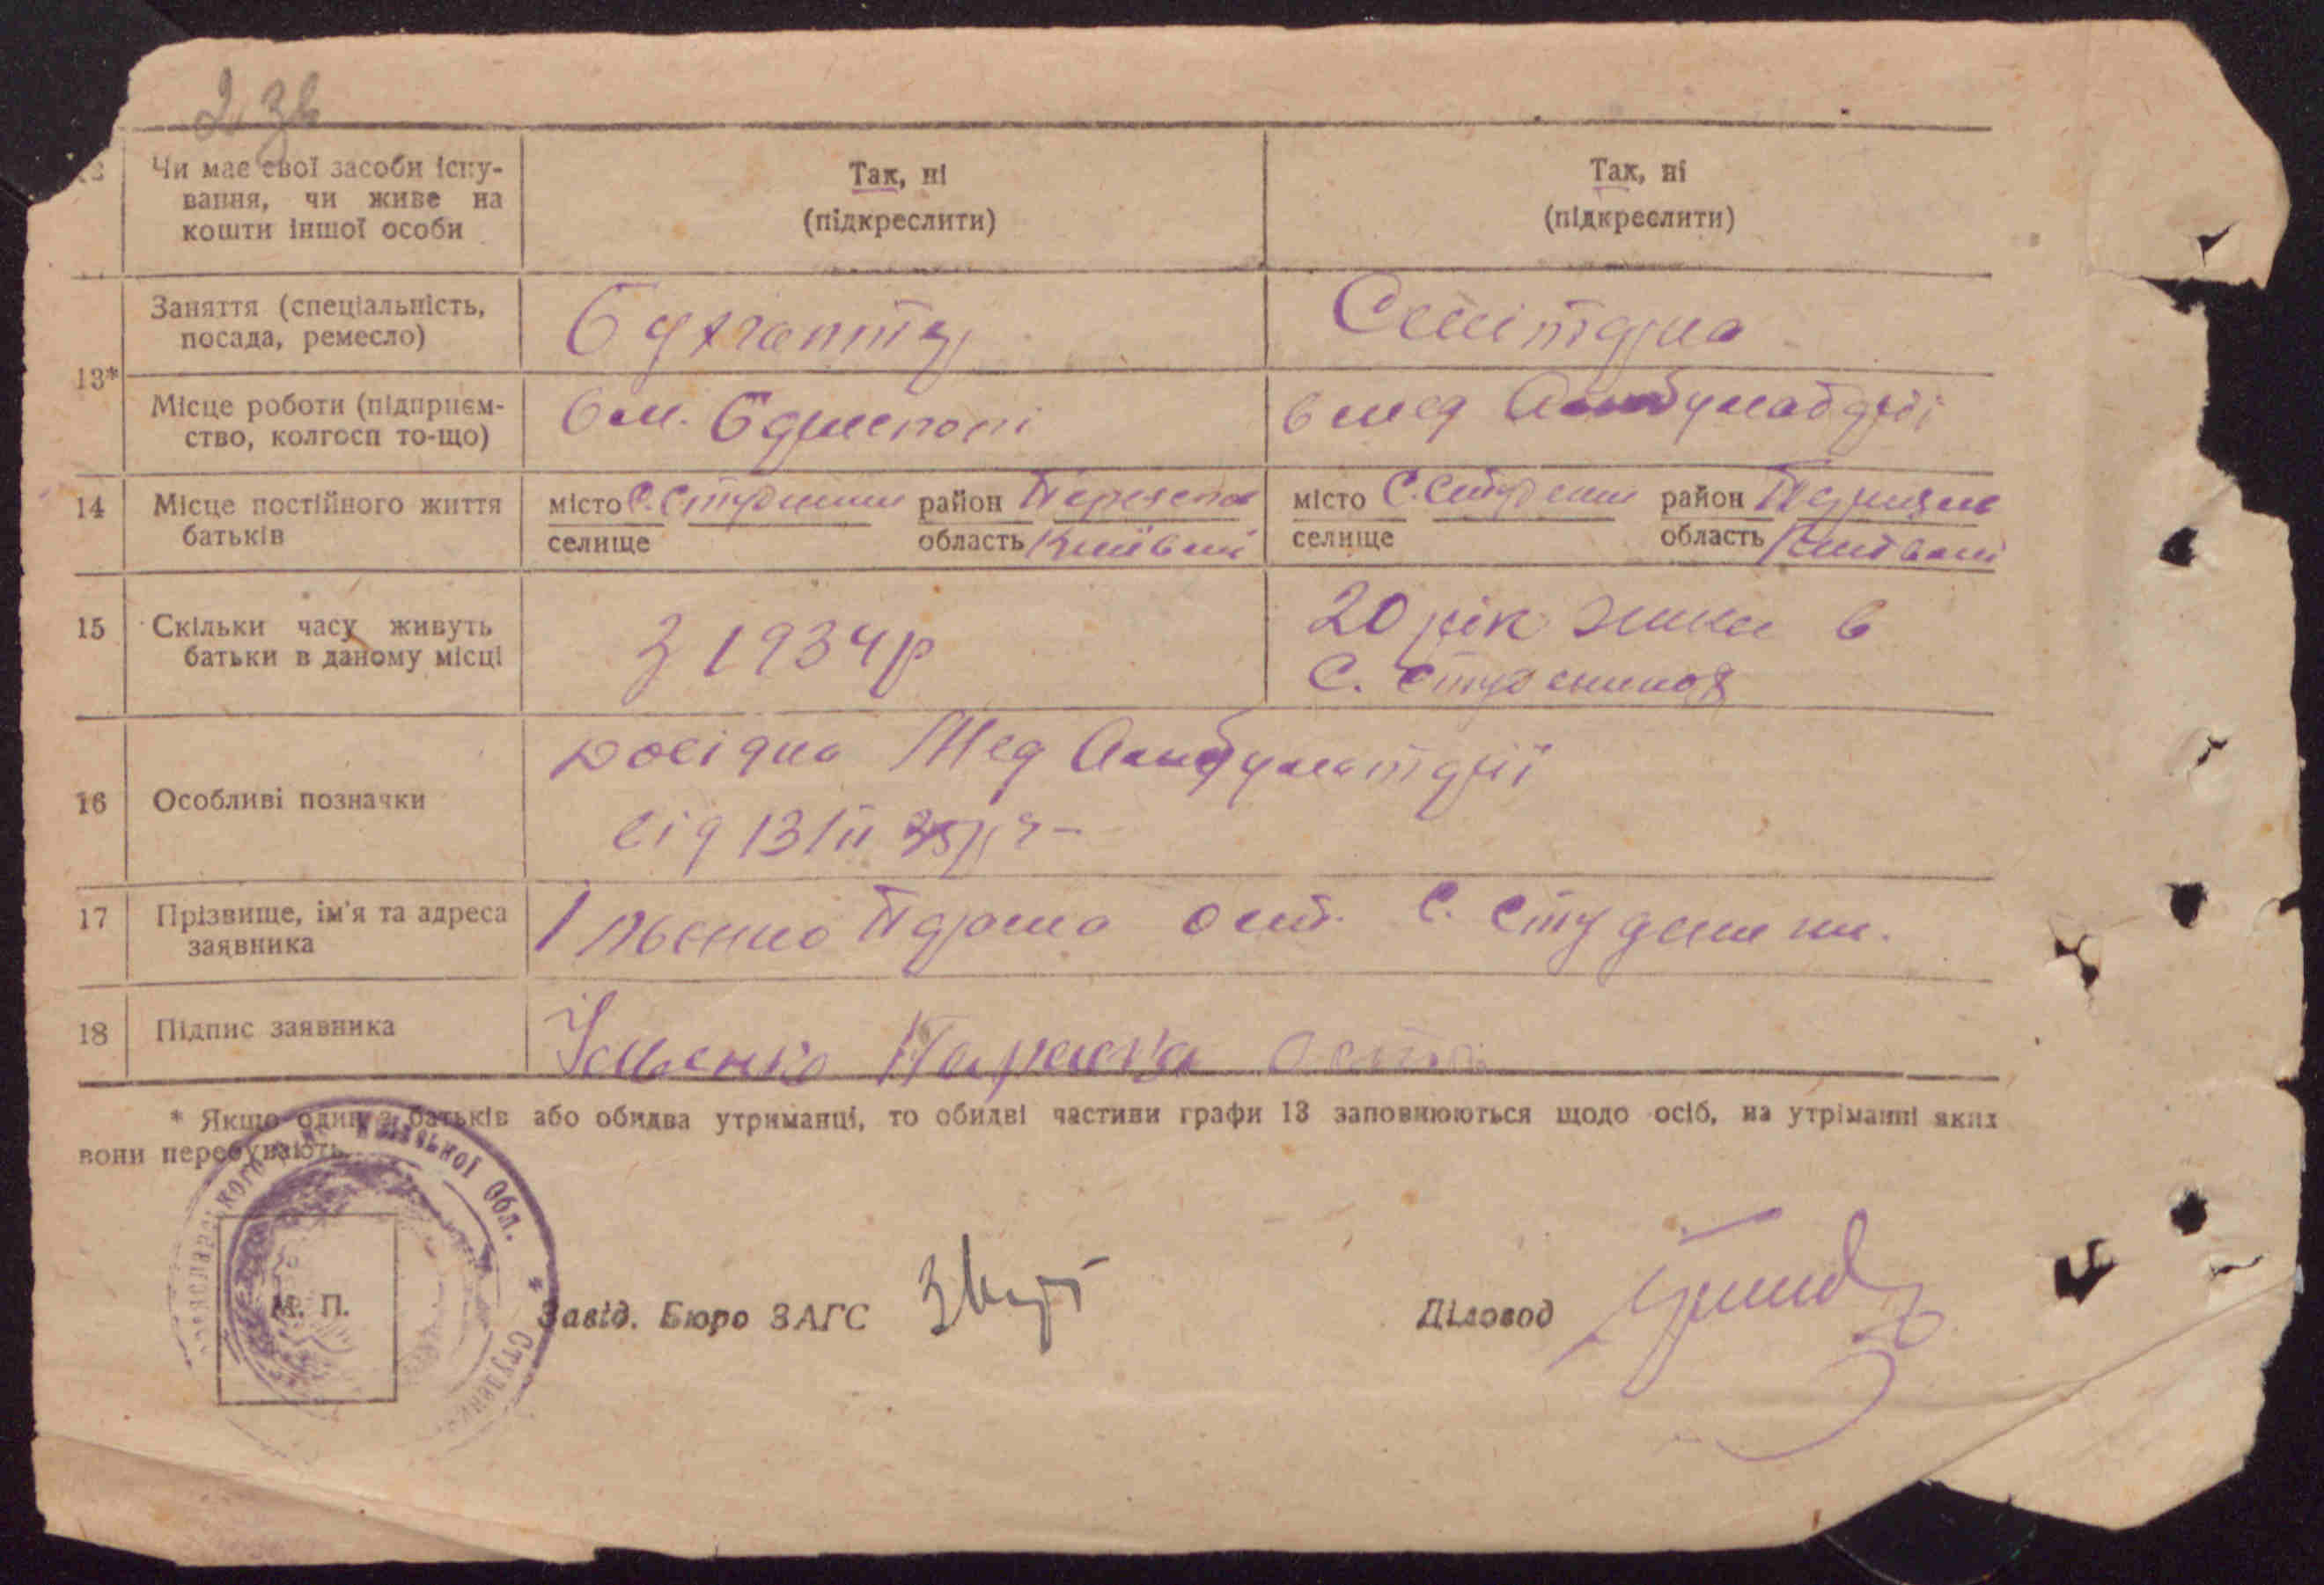 2 зв
Чи має свої засоби існу-
вання, чи живе на
кошти іншої особи
Так, ні
(підкреслити)
Так, ні
(підкреслити)
13*
Заняття (спеціальність,
посада, ремесло)
Бухгалтер
Санітарка
Місце роботи (підприєм-
ство, колгосп то-що)
в м. Борисполі
в мед Амбулаторії
14
Місце постійного життя
батьків
місто С. Студеники район
селище область Київські
місто С. район
селище область
15
Скільки часу живуть
батьки в даному місці
З 1934 р
20 рік живе в
С. Студениках
16
Особливі позначки
довідка Мед Амбулаторії
від 13/II 35 р
17
Прізвище, ім'я та адреса
заявника
Ільєнко Параска Ост. С. Студеники.
18
Підпис заявника
Ільєнко Параска
* Якщо один з батьків або обидва утриманці, то обидві частини графи 13 заповнюються щодо осіб, на утріманні яких
вони перебувають.
Київської Обл. * Студени
М. П.
Завід. Бюро ЗАГС
Діловод